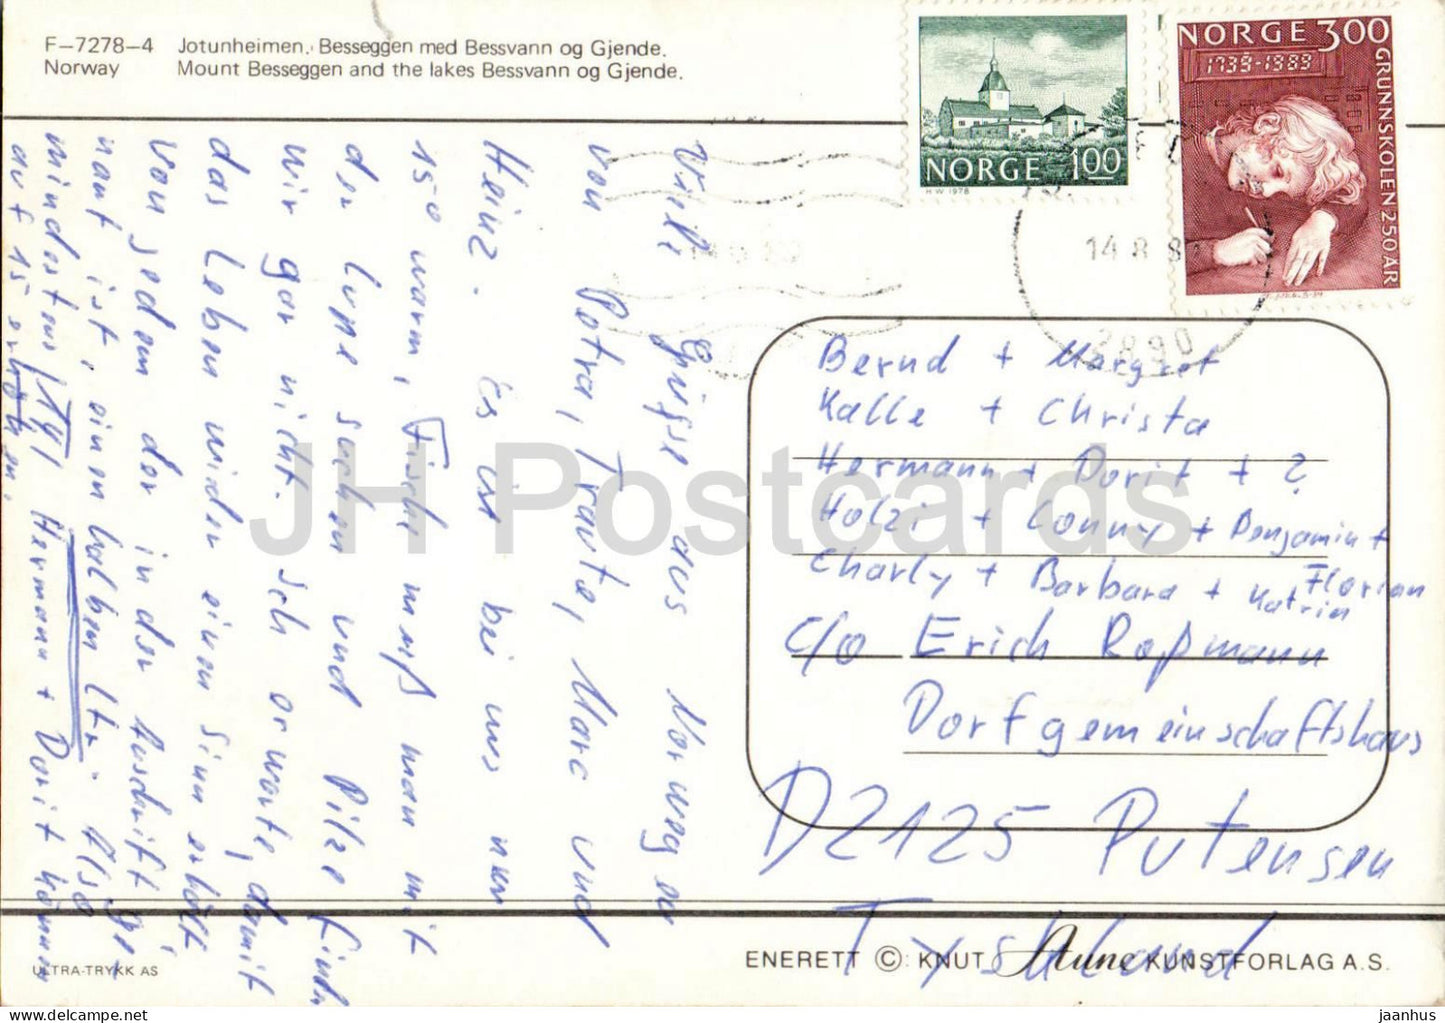 F–7278–4 Jotunheimen. Besseggen med Bessvann og Gjende.
Norway Mount Besseggen and the lakes Bessvann og Gjende.
NORGE 1.00
H W 1978
NORGE 3.00
1739-1989
GRUNNSKOLEN 250 ÅR
14 8 8
2890
Viele Grüsse aus Norwegen
von Petra, Traute, Marc und
Heinz. Es ist bei uns nur
15° warm, Fische muß man mit
der Lupe suchen und Pilze finden
wir gar nicht. Ich erwarte, damit
das Leben wieder einen Sinn erhält
von jedem der in der Anschrift ge-
nant ist, einen halben Ltr. Also
mindestens Hermann + Dorit können
auf 15 erhöhen.
Bernd + Margret
Kalle + Christa
Hermann + Dorit + ?
Holzi + Conny + Benjamin +
Florian
Charly + Barbara + Katrin
c/o Erich Roßmann
Dorfgemeinschaftshaus
D2125 Putensen
Tyskland
ULTRA-TRYKK AS
ENERETT ©: KNUT Aune KUNSTFORLAG A.S.
JH Postcards
jaanhus